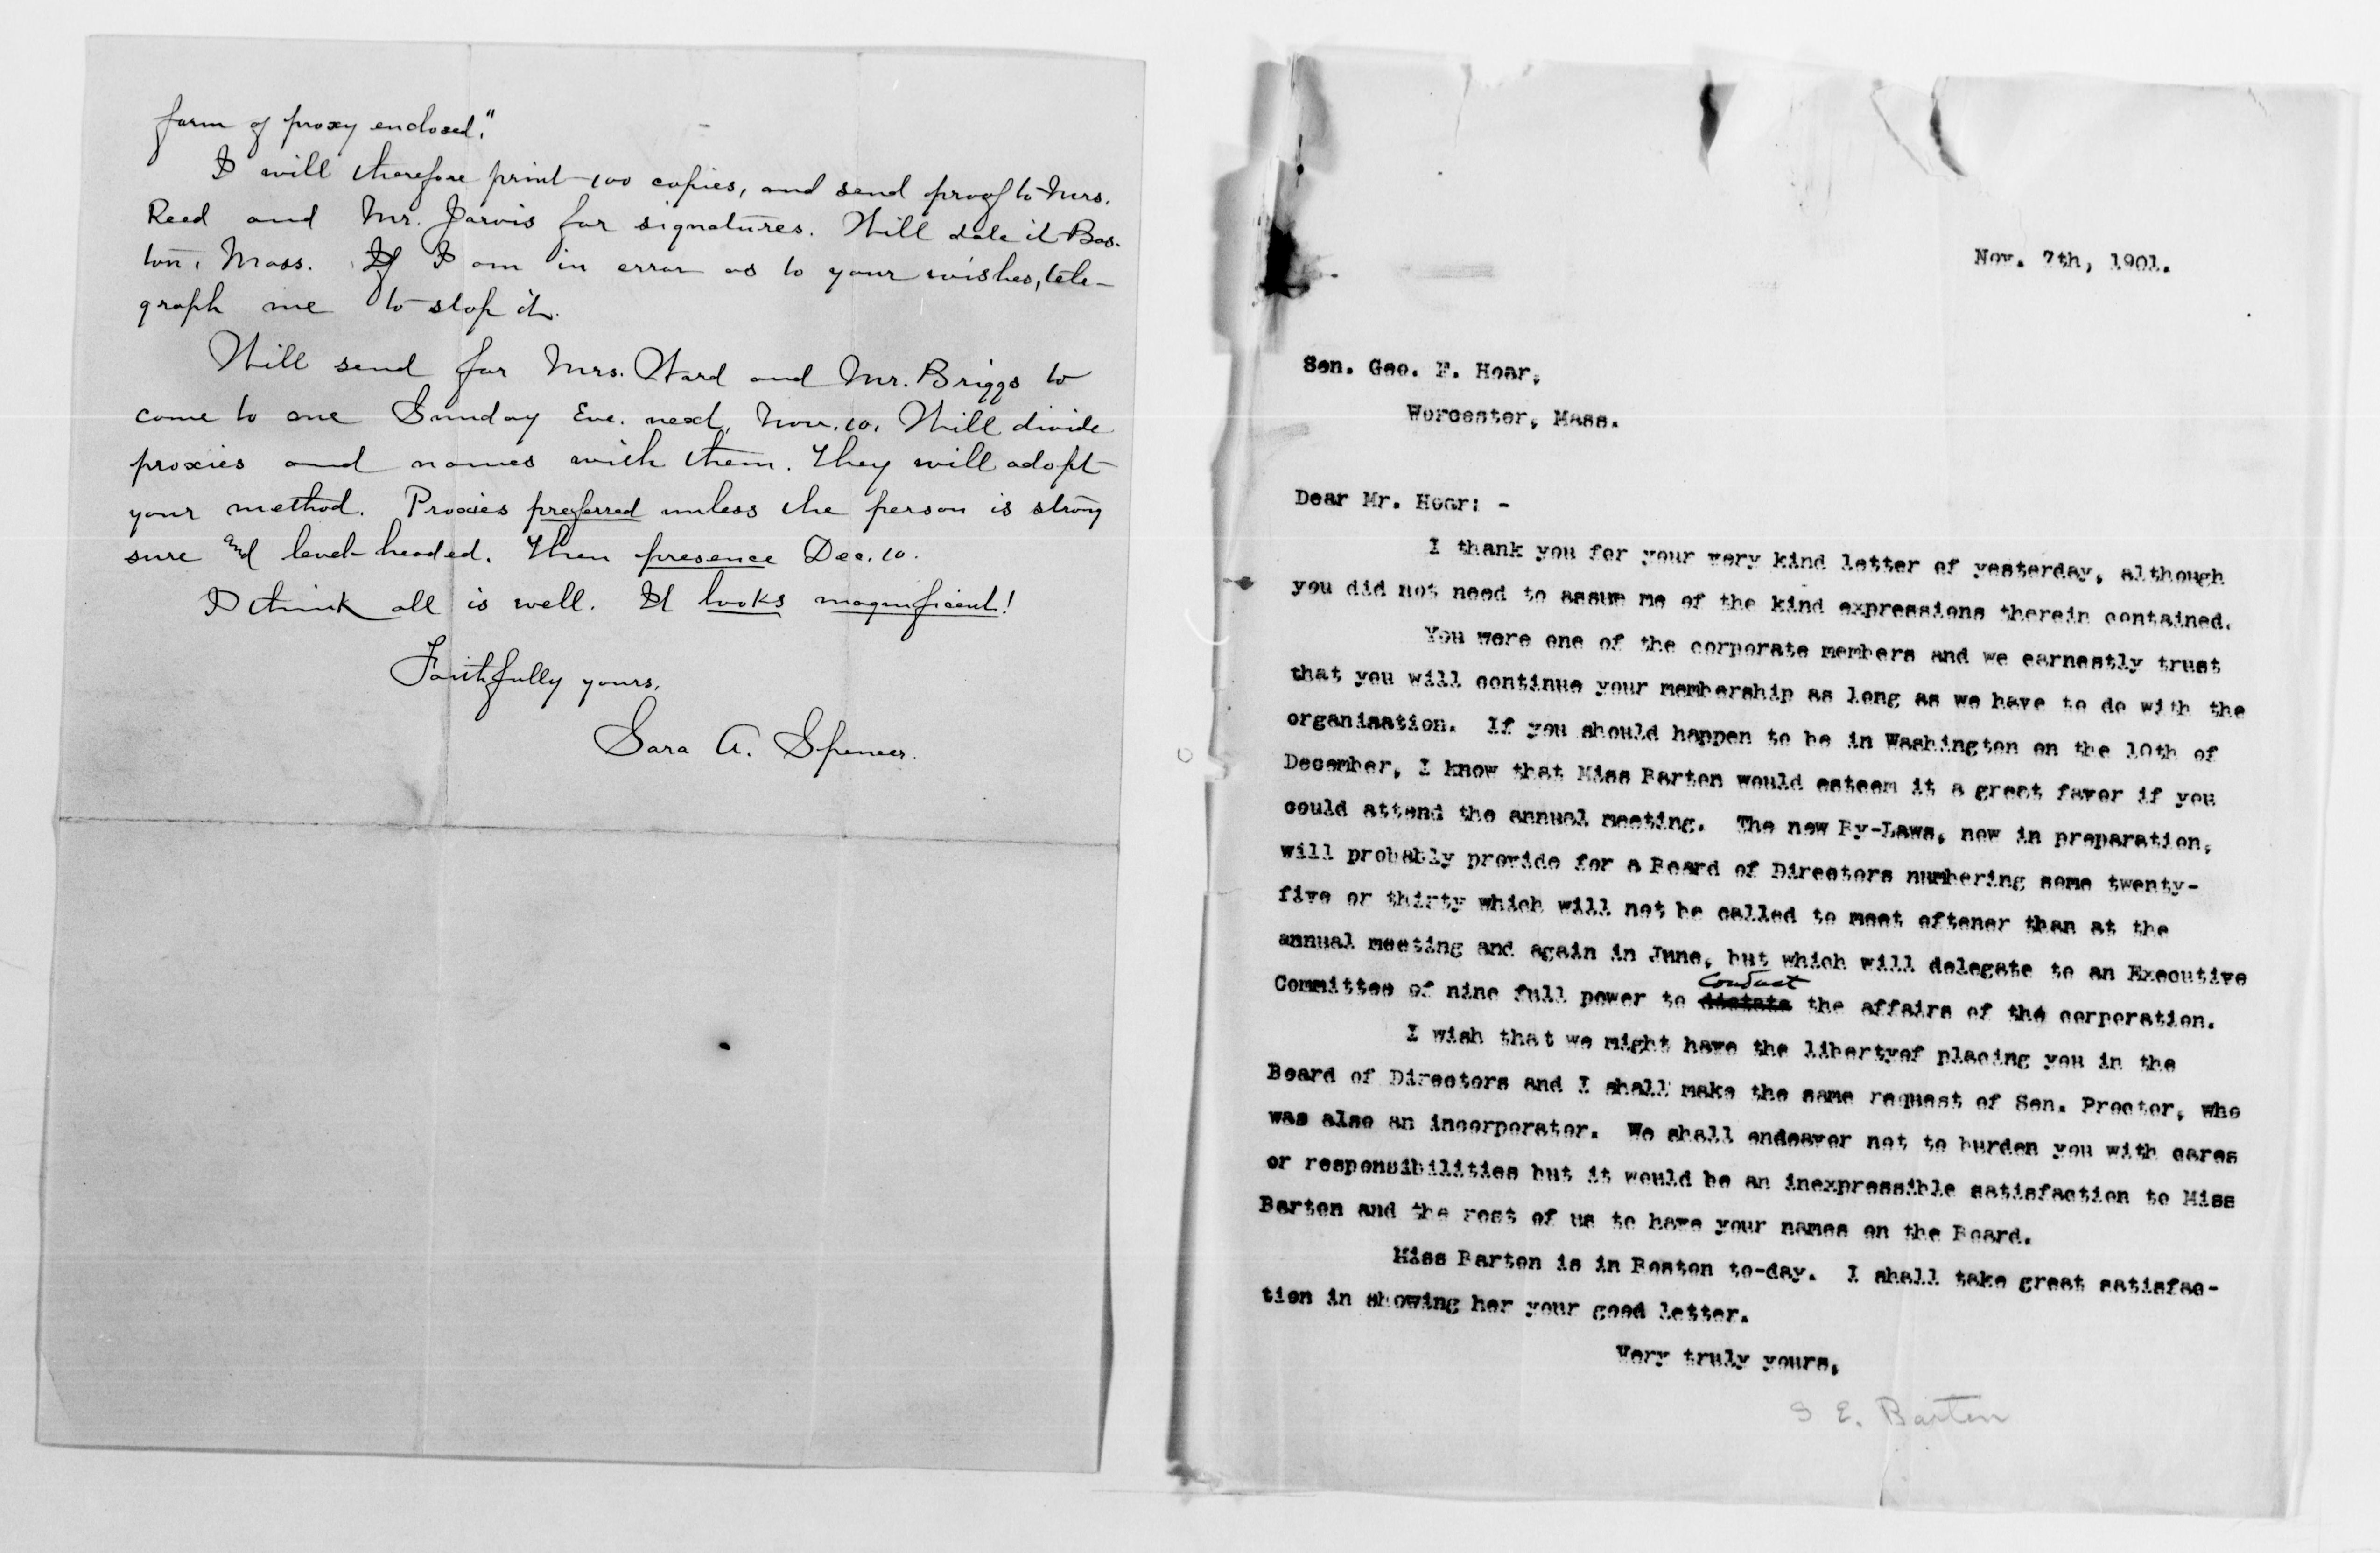 form of proxy enclosed."
I will therefore print 100 copies, and send proof to Mrs.
Reed and Mr. Jarvis for signatures. Will date it Bos-
ton, Mass. If I am in error as to your wishes, tele-
graph me to stop it.
Will send for Mrs. Ward and Mr. Briggs to
come to me Sunday Eve. next, Nov. 10. Will divide
proxies and names with them. They will adopt
your method. Proxies preferred unless the person is strong
sure and level-headed. Then presence Dec. 10.
I think all is well. It looks magnificent!
Faithfully yours,
Sara A. Spencer.
Nov. 7th, 1901.
Sen. Geo. F. Hoar,
Worcester, Mass.
Dear Mr. Hoar: -
I thank you for your very kind letter of yesterday, although
you did not need to assure me of the kind expressions therein contained.
You were one of the corporate members and we earnestly trust
that you will continue your membership as long as we have to do with the
organization. If you should happen to be in Washington on the 10th of
December, I know that Miss Barton would esteem it a great favor if you
could attend the annual meeting. The new By-Laws, now in preparation,
will probably provide for a Board of Directors numbering some twenty-
five or thirty which will not be called to meet oftener than at the
annual meeting and again in June, but which will delegate to an Executive
Committee of nine full power to dictate conduct the affairs of the corporation.
I wish that we might have the libertyof placing you in the
Board of Directors and I shall make the same request of Sen. Proctor, who
was also an incorporator. We shall endeavor not to burden you with cares
or responsibilities but it would be an inexpressible satisfaction to Miss
Barton and the rest of us to have your names on the Board.
Miss Barton is in Boston to-day. I shall take great satisfac-
tion in showing her your good letter.
Very truly yours,
S E. Barton